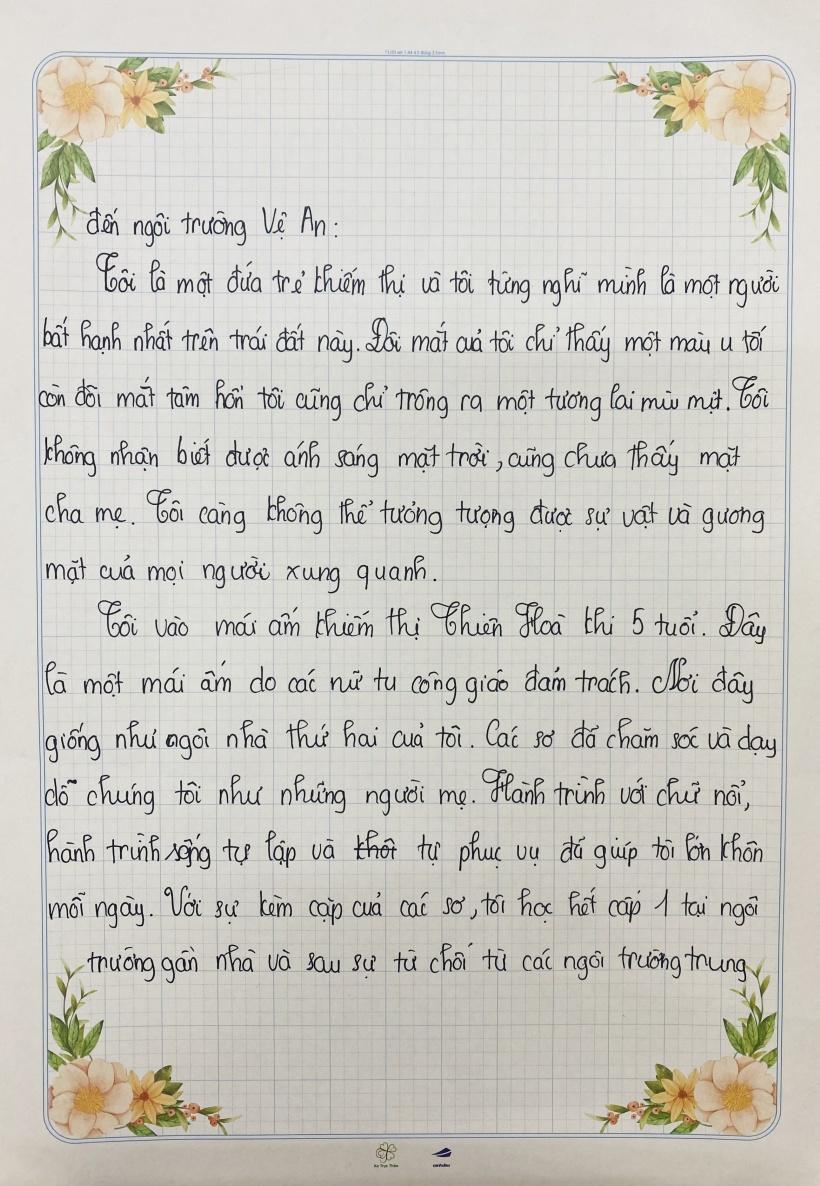 đến ngôi trường Vệ An:
Tôi là một đứa trẻ khiếm thị và tôi từng nghĩ mình là một người
bất hạnh nhất trên trái đất này. Đôi mắt cuả tôi chỉ thấy một màu u tối
còn đôi mắt tâm hồn tôi cũng chỉ trông ra một tương lai mù mịt. Tôi
không nhận biết được ánh sáng mặt trời, cũng chưa thấy mặt
cha mẹ. Tôi càng không thể tưởng tượng được sự vật và gương
mặt cuả mọi người xung quanh.
Tôi vào mái ấm khiếm thị Thiên Hoà khi 5 tuổi. Đây
là một mái ấm do các nữ tu công giáo đảm trách. Nơi đây
giống như ngôi nhà thứ hai cuả tôi. Các sơ đã chăm sóc và dạy
dỗ chúng tôi như những người mẹ. Hành trình với chữ nổi,
hành trình sống tự lập và tự phục vụ đã giúp tôi lớn khôn
mỗi ngày. Với sự kèm cặp cuả các sơ, tôi học hết cấp 1 tại ngôi
trường gần nhà và sau sự từ chối từ các ngôi trường trung